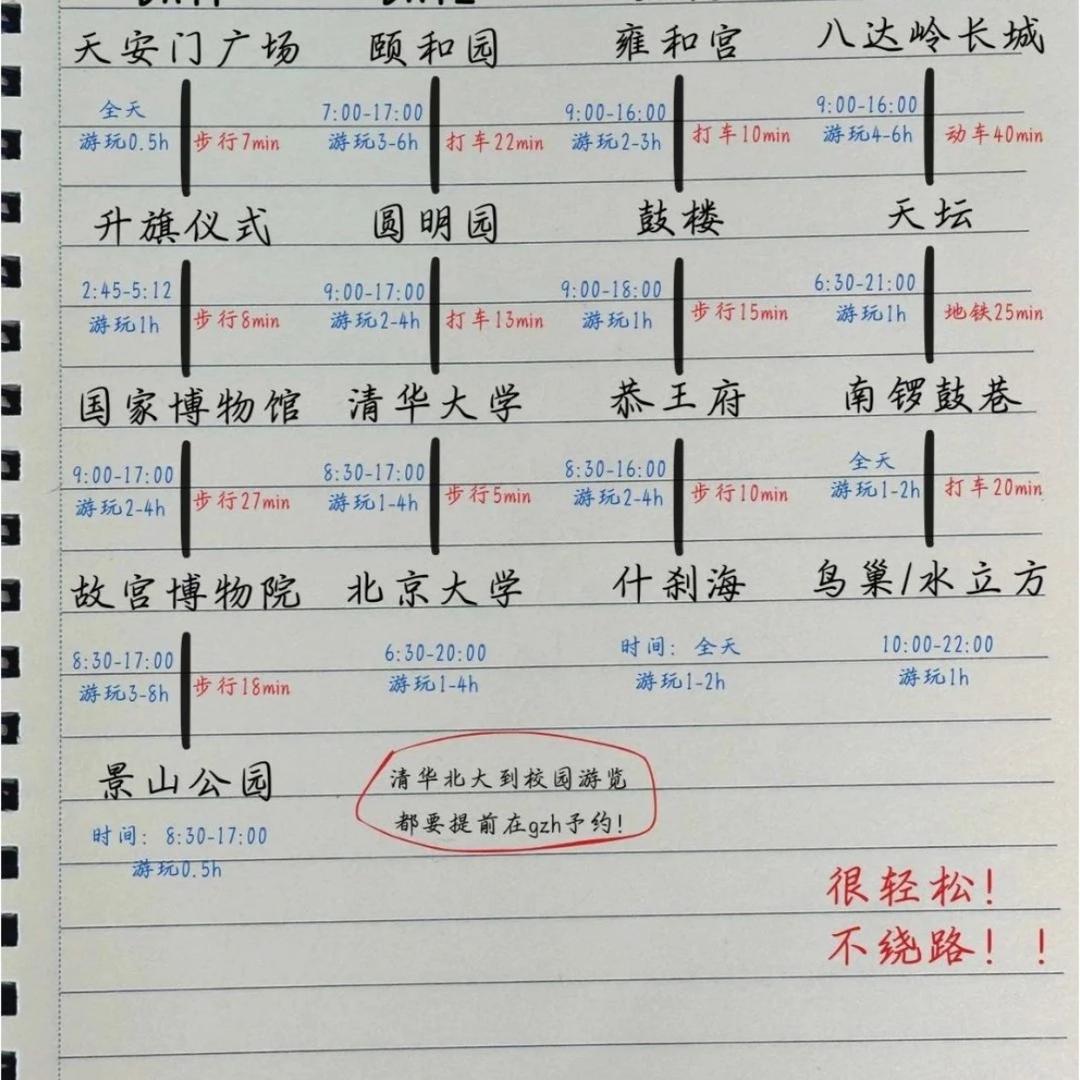 天安门广场
全天
游玩0.5h
步行7min
升旗仪式
2:45-5:12
游玩1h
步行8min
国家博物馆
9:00-17:00
游玩2-4h
步行27min
故宫博物院
8:30-17:00
游玩3-8h
步行18min
景山公园
时间：8:30-17:00
游玩0.5h
颐和园
7:00-17:00
游玩3-6h
打车22min
圆明园
9:00-17:00
游玩2-4h
打车13min
清华大学
8:30-17:00
游玩1-4h
步行5min
北京大学
6:30-20:00
游玩1-4h
清华北大到校园游览
都要提前在gzh予约！
雍和宫
9:00-16:00
游玩2-3h
打车10min
鼓楼
9:00-18:00
游玩1h
步行15min
恭王府
8:30-16:00
游玩2-4h
步行10min
什刹海
时间：全天
游玩1-2h
八达岭长城
9:00-16:00
游玩4-6h
动车40min
天坛
6:30-21:00
游玩1h
地铁25min
南锣鼓巷
全天
游玩1-2h
打车20min
鸟巢/水立方
10:00-22:00
游玩1h
很轻松！
不绕路！！